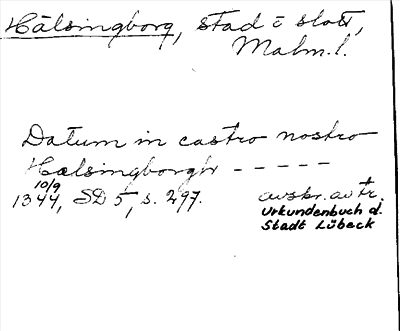 Hälsingborg, stad o slott,
Malm. l.
Datum in castro nostro
Hælsingborgh - - - - -
10/9
1344, SD 5, s. 297. avskr. av tr.
Urkundenbuch d.
Stadt Lübeck